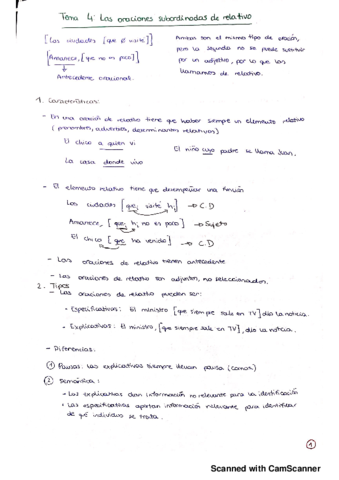 Tema 4: Las oraciones subordinadas de relativo
[Las ciudades [que él visité]]
[Amanece, [que no es poco]]
Antecedente oracional.
Ambas son el mismo tipo de oración,
pero la segunda no se puede sustituir
por un adjetivo, por lo que las
llamamos de relativo.
1. Características:
- En una oración de relativo tiene que haber siempre un elemento relativo
(pronombres, adverbios, determinantes relativos)
El chico a quien vi
El niño cuyo padre se llama Juan.
La casa donde vivo
- El elemento relativo tiene que desempeñar una función
Las ciudades [que visité hi] → C.D
Amanece, [que hi no es poco] → Sujeto
El chico [que ha venido] → C.D
- Las oraciones de relativo tienen antecedente
- Las oraciones de relativo son adjuntos, no seleccionados.
2. Tipos
- Las oraciones de relativo pueden ser:
• Especificativas: El ministro [que siempre sale en TV] dio la noticia.
• Explicativas: El ministro, [que siempre sale en TV], dio la noticia.
- Diferencias:
① Pausas: las explicativas siempre llevan pausa (comas)
② Semántica:
• Las explicativas dan información no relevante para la identificación
• Las especificativas aportan información relevante para identificar
de qué individuo se trata.
①
Scanned with CamScanner